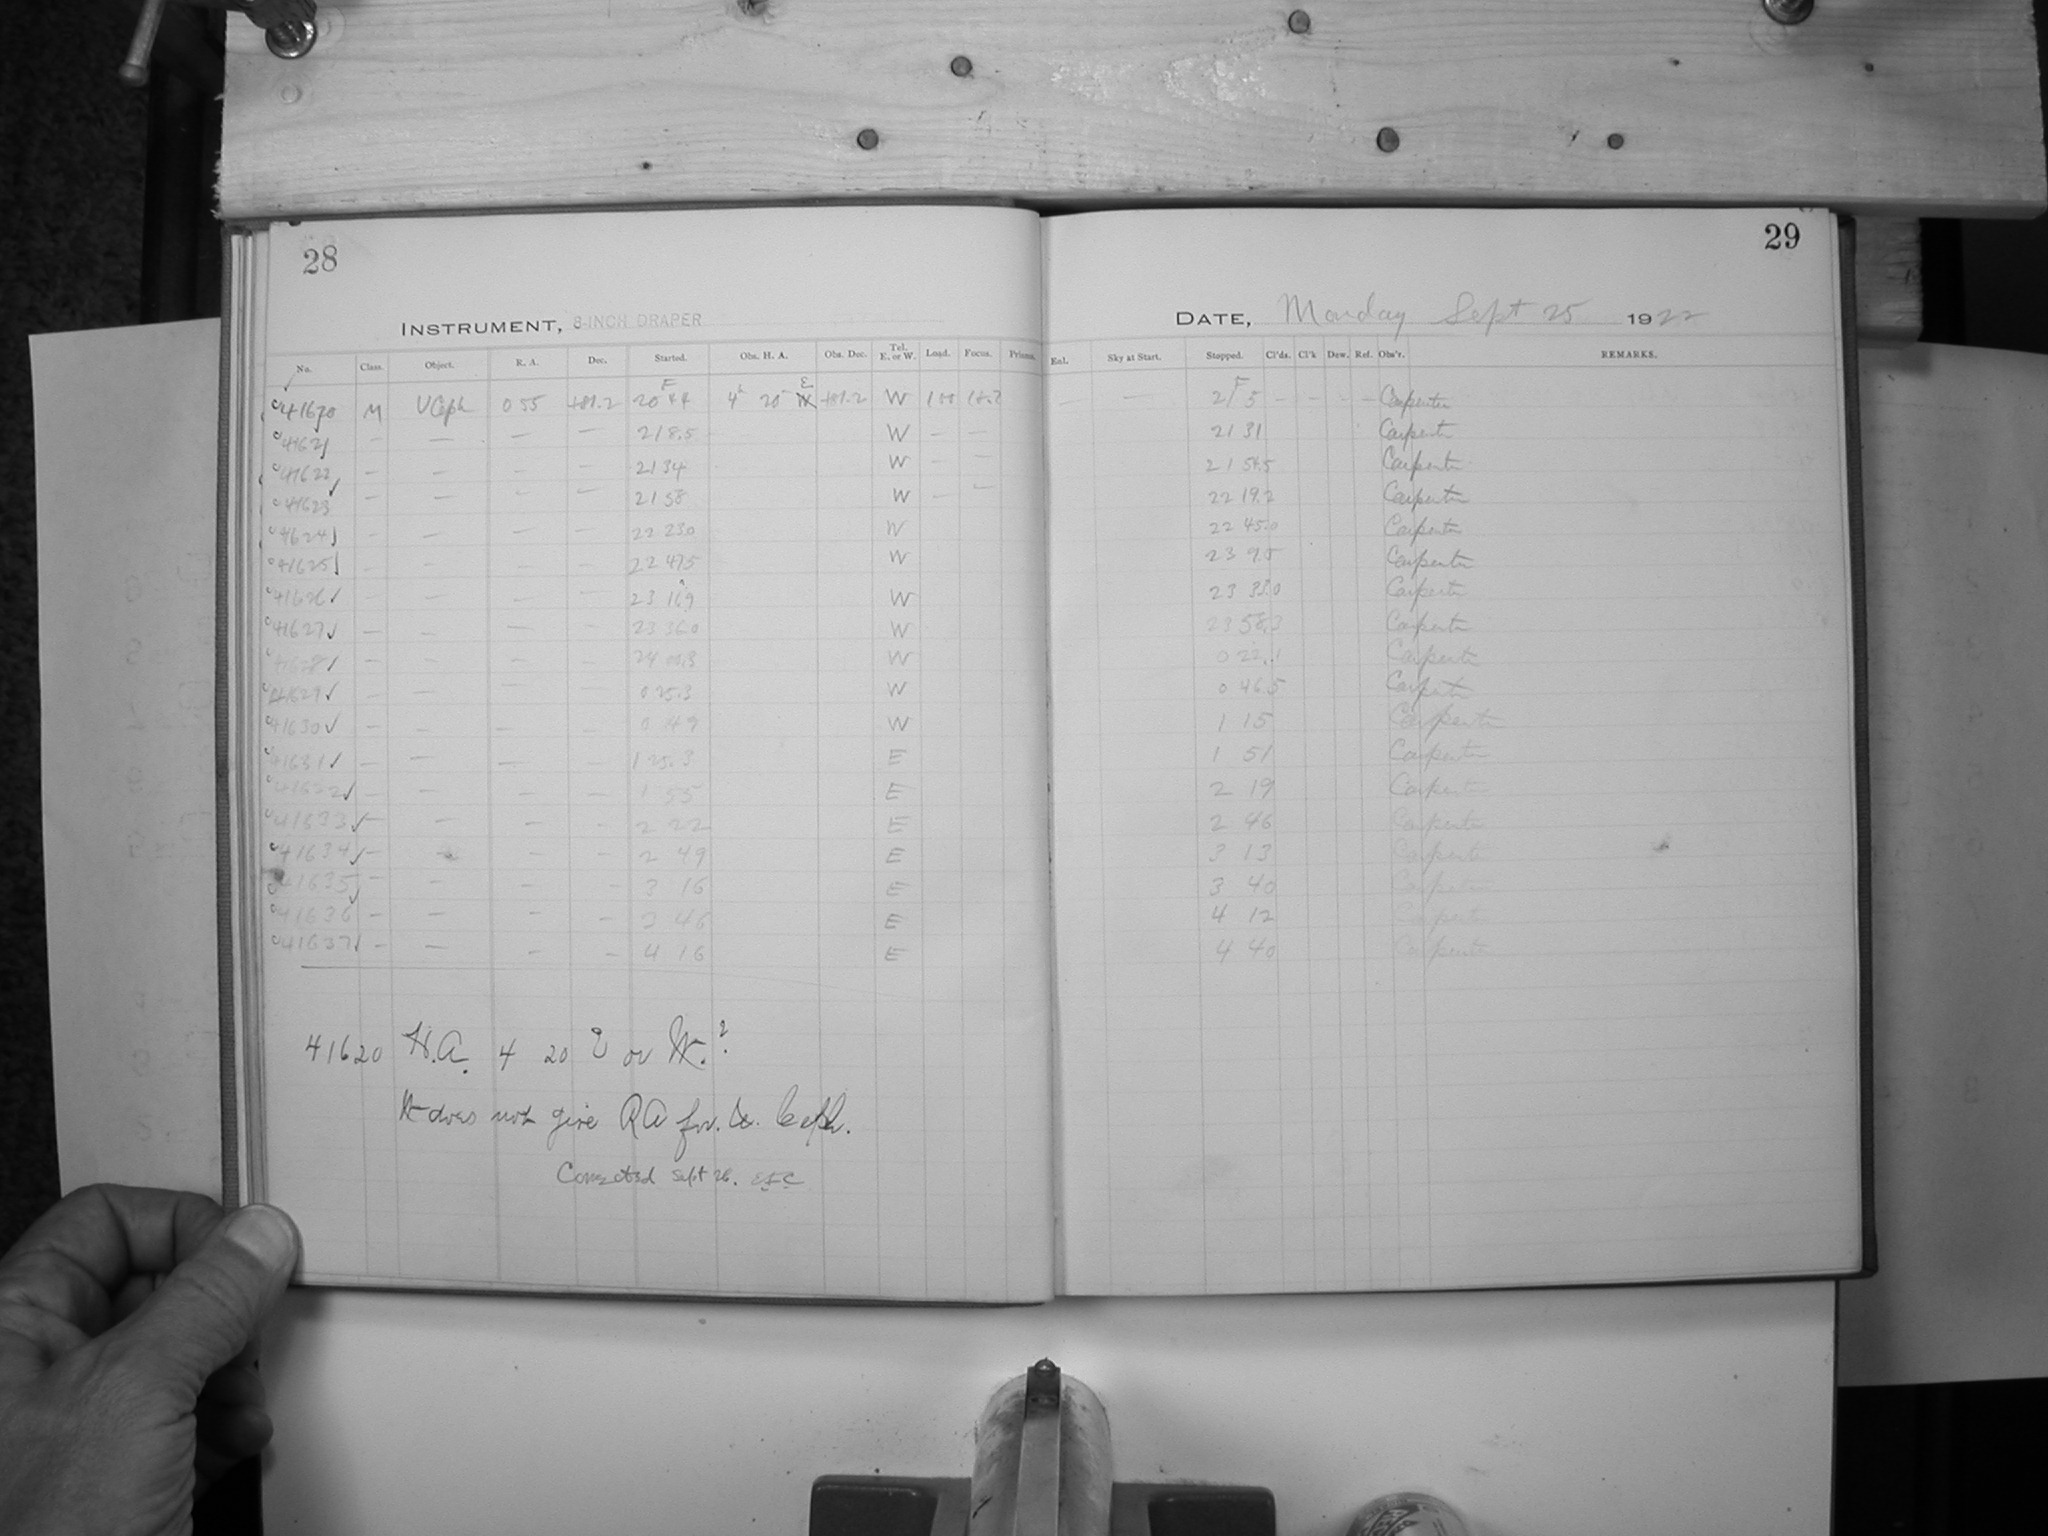 28
INSTRUMENT, 8-INCH DRAPER
No. Class. Object. R. A. Dec. Started. Obs. H. A. Obs. Dec. Tel. E. or W. Load. Focus. Prisms.
41620 M U Ceph 0 55 +81.2 20 44 4h 20 E +81.2 W 100
41621 — — — — 21 8.5 W — —
41622 — — — — 21 34 W — —
41623 — — — — 21 58 W — —
41624 — — — — 22 23.0 W
41625 — — — — 22 47.5 W
41626 — — — — 23 W
41627 — — — — 23 36.0 W
41628 — — — — 24 W
41629 — — — — 0 25.3 W
41630 — — — — 0 49 W
41631 — — — — 1 25.3 E
41632 — — — — 1 55 E
41633 — — — — 2 22 E
41634 — — — — 2 49 E
41635 — — — — 3 16 E
41636 — — — — 3 46 E
41637 — — — — 4 16 E
41620 H.A. 4 20 E or W.?
It does not give RA for U. Ceph.
Corrected Sept 26.
29
DATE, Monday Sept 25 1922
Enl. Sky at Start. Stopped. Cl'ds. Cl'k Dew. Ref. Obs'r. REMARKS.
— — 21 5 — — — — Carpenter
21 31 Carpenter
21 54.5 Carpenter
22 19.2 Carpenter
22 45.0 Carpenter
23 9.5 Carpenter
23 33.0 Carpenter
23 58.3 Carpenter
0 22.1 Carpenter
0 46.5 Carpenter
1 15 Carpenter
1 51 Carpenter
2 19 Carpenter
2 46 Carpenter
3 13 Carpenter
3 40 Carpenter
4 12 Carpenter
4 40 Carpenter